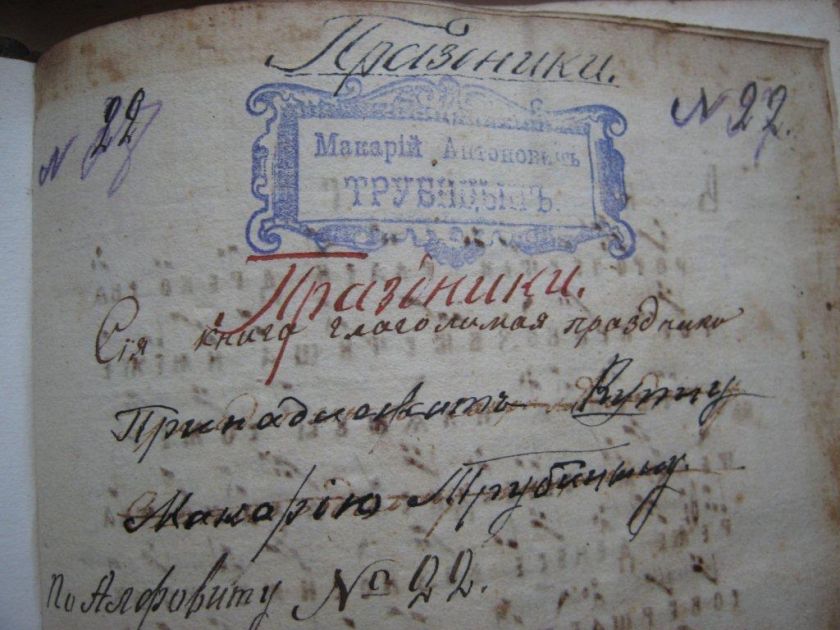 Праздники.
№ 22
№ 27.
Макарій Антоновичъ
ТРУБИЦЫНЪ.
Праздники.
Сія книга глаголимая праздники
Принадлежитъ Купцу
Макарію Трубицыну.
По Алфовиту № 22.